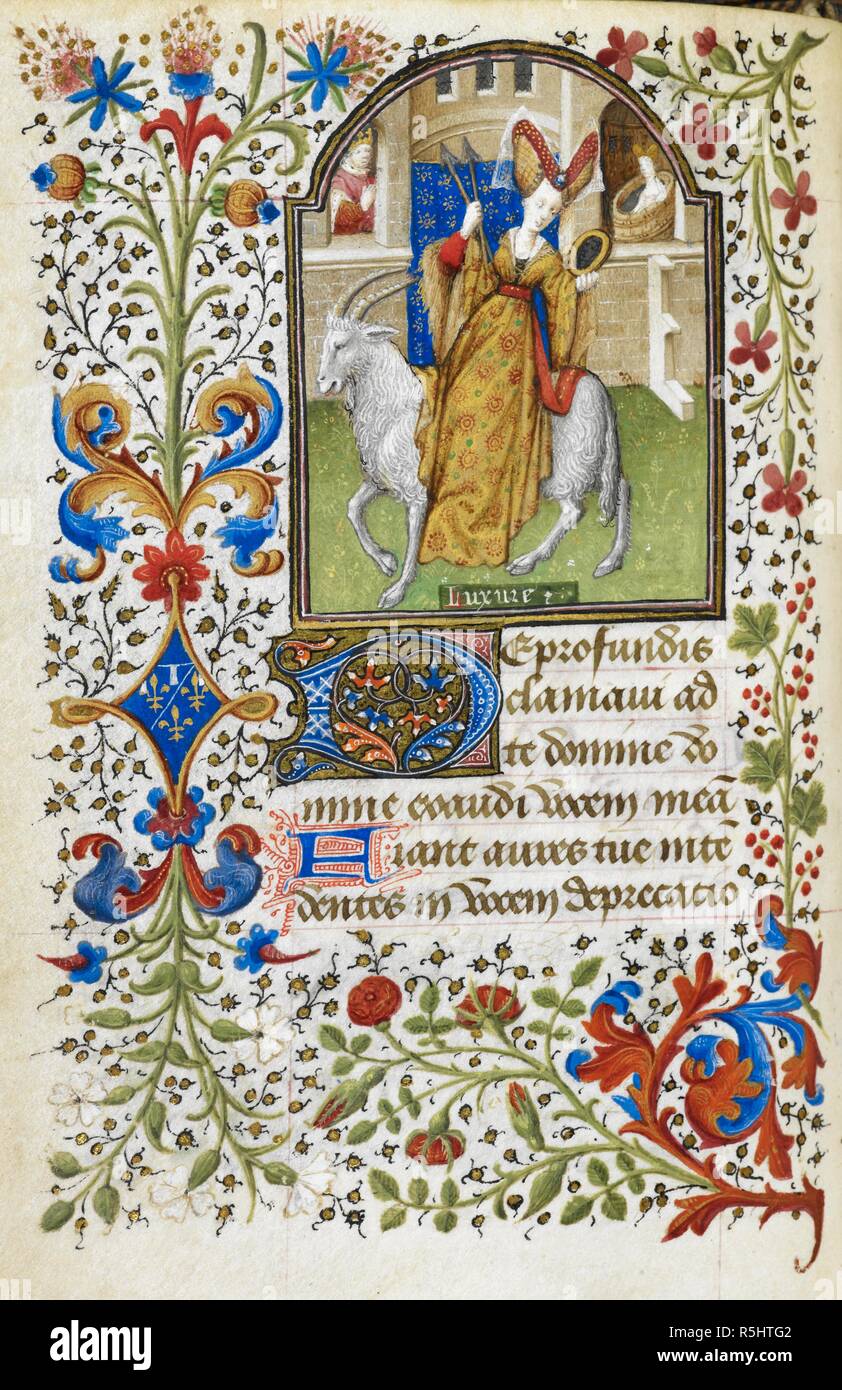 Luxure :
Deprofundis
clamaui ad
te domine do
mine exaudi vocem meā
Fiant aures tue intē
dentes in vocem deprecatio
alamy
Image ID: R5HTG2
www.alamy.com